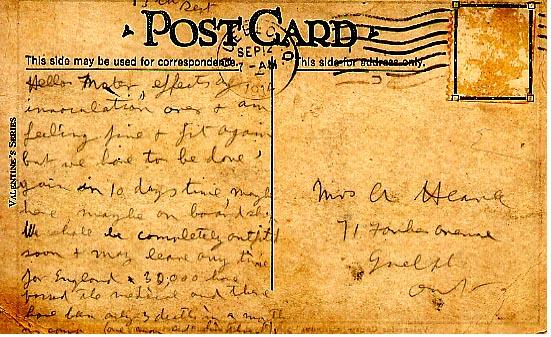 Sept
POST CARD
SEP 12
7-AM
1914
This side may be used for correspondence.
This side for address only.
VALENTINE'S SERIES
Hello Mater, effects of
innoculation over & am
feeling fine & fit again
but we have to be done
again in 10 days time, maybe
here, maybe on board ship
We shall be completely outfitted
soon & may leave any time
for England & 30,000 have
passed the medical and there
have been only 3 deaths in a month
Mrs A Hearn
71 avenue
Guelph
Ont